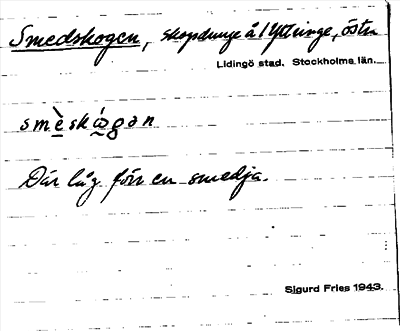 Smedskogen, skogdunge å 1 Yttringe, östra
Lidingö stad. Stockholms län.
smèskógən
Där låg förr en smedja.
Sigurd Fries 1943.